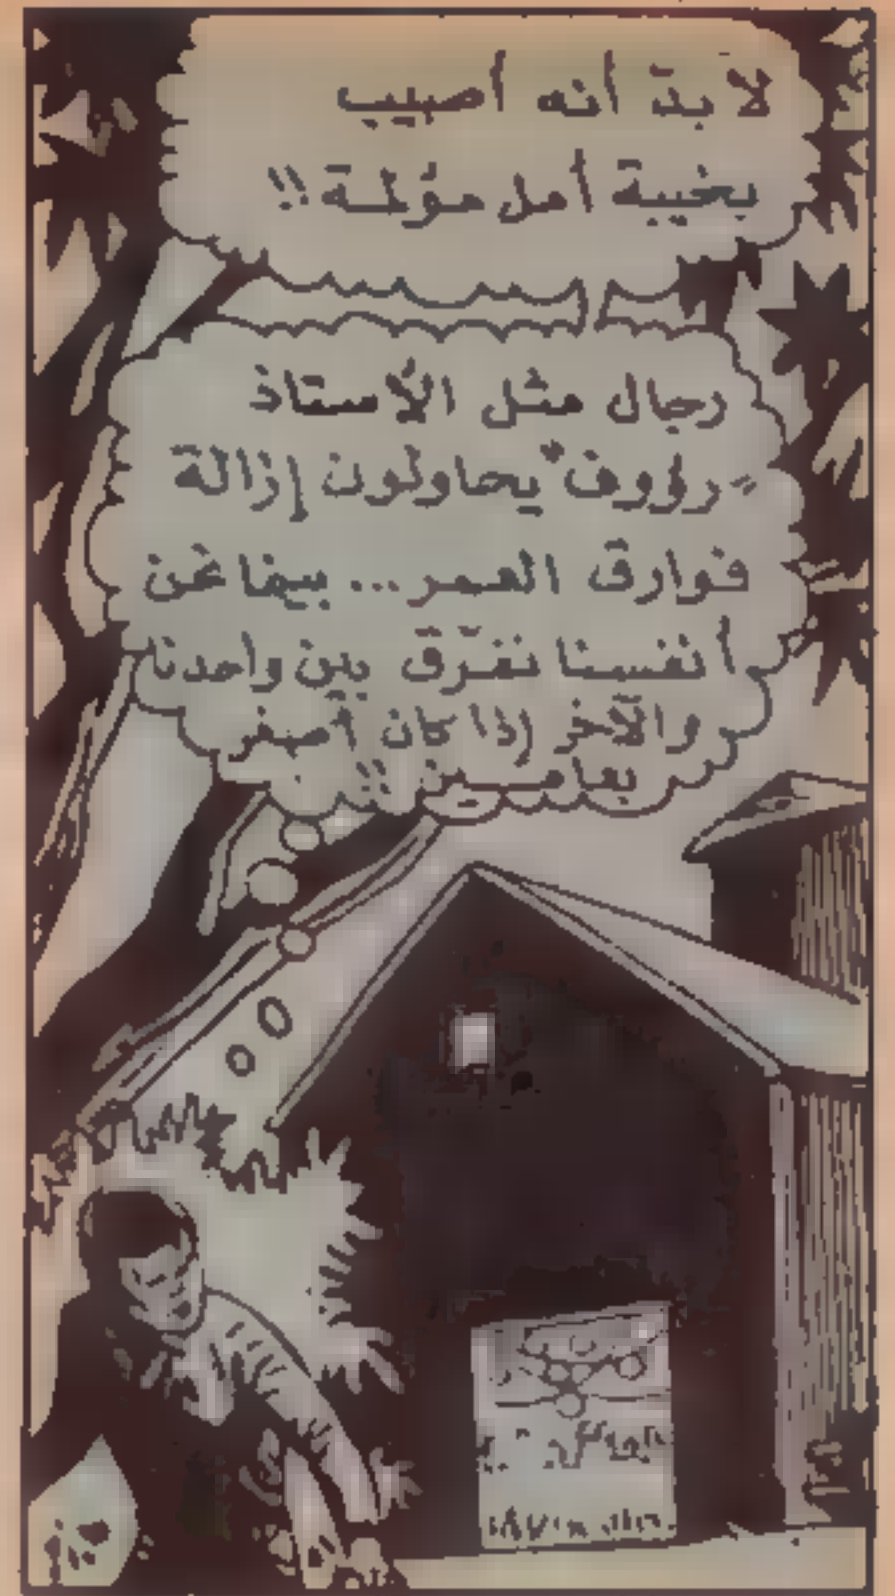 لا بدّ أنه أصيب
بخيبة أمل مؤلمة !!
رجال مثل الأستاذ
"رؤوف" يحاولون إزالة
فوارق العمر... بينما نحن
أنفسنا نفرّق بين واحدنا
والآخر إذا كان أصغر
بعامين !!